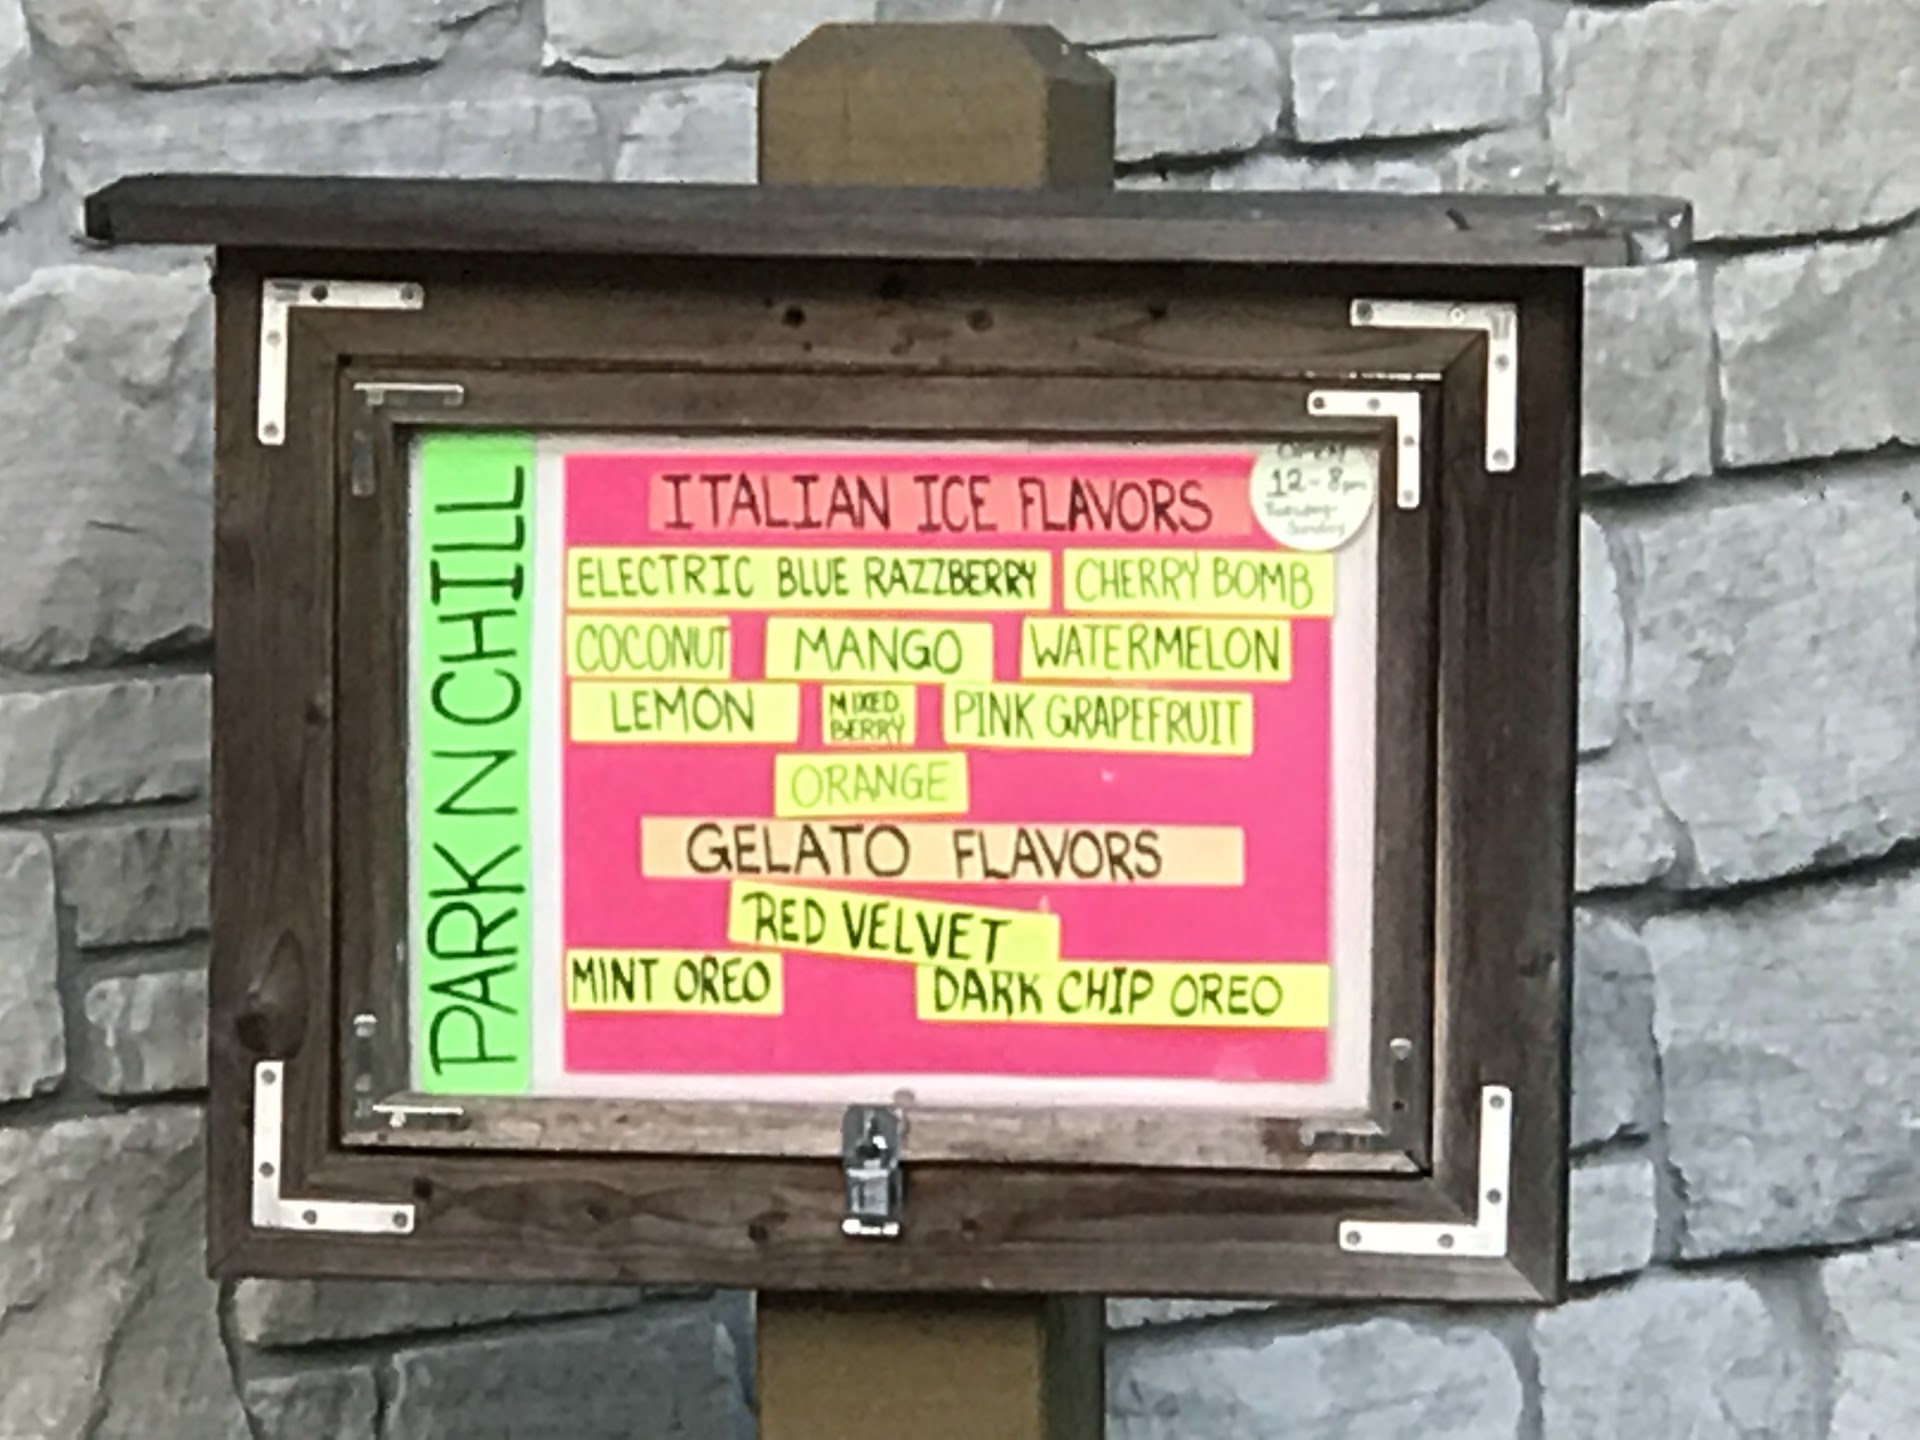 PARK N CHILL
ITALIAN ICE FLAVORS
OPEN
12-8pm
Tuesday-
Sunday
ELECTRIC BLUE RAZZBERRY CHERRY BOMB
COCONUT MANGO WATERMELON
LEMON MIXED BERRY PINK GRAPEFRUIT
ORANGE
GELATO FLAVORS
RED VELVET
MINT OREO DARK CHIP OREO